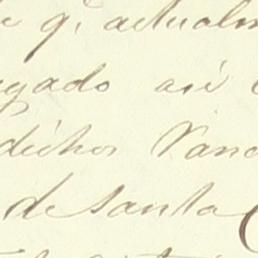 qe. actualm
gado así
dichos Ranc
de Santa C